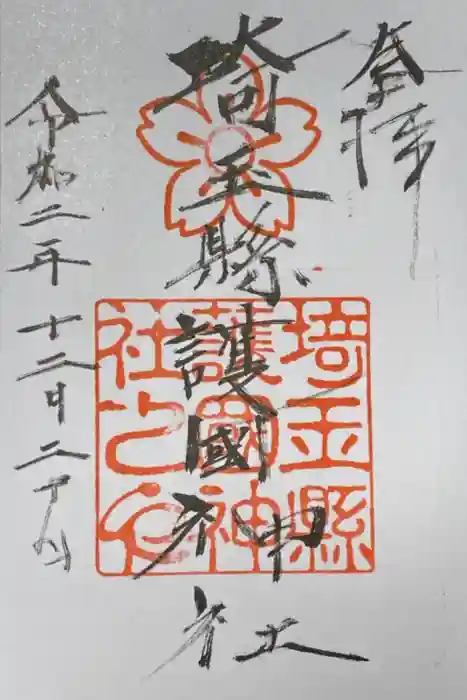 奉拝
埼玉縣護國神社
令和二年十二月二十八日
埼玉縣
護國神
社之印